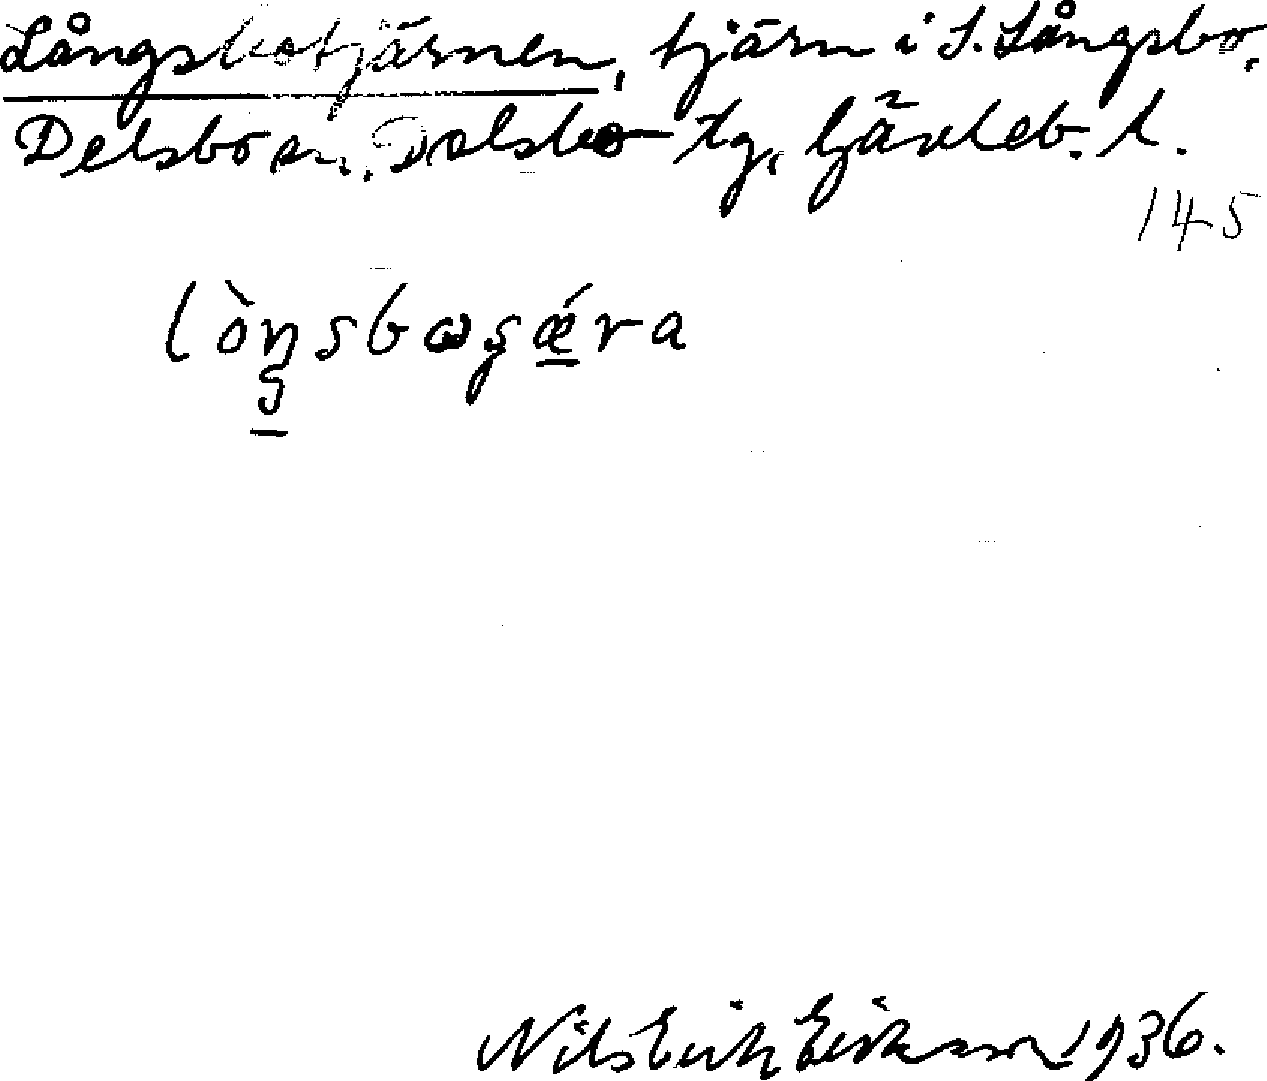 Långsbotjärnen, tjärn i S. Långsbo,
Delsbo sn, Delsbo tg, Gävleb. l.
145
lòŋsbωʂǽra
Nils Erik Eriksson 1936.